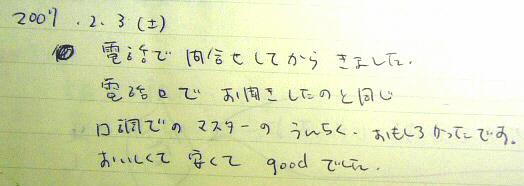 2007.2.3(土)
電話で問合せしてからきました.
電話口でお聞きしたのと同じ
口調でのマスターのうんちく.おもしろかったです。
おいしくて安くてgoodでした.